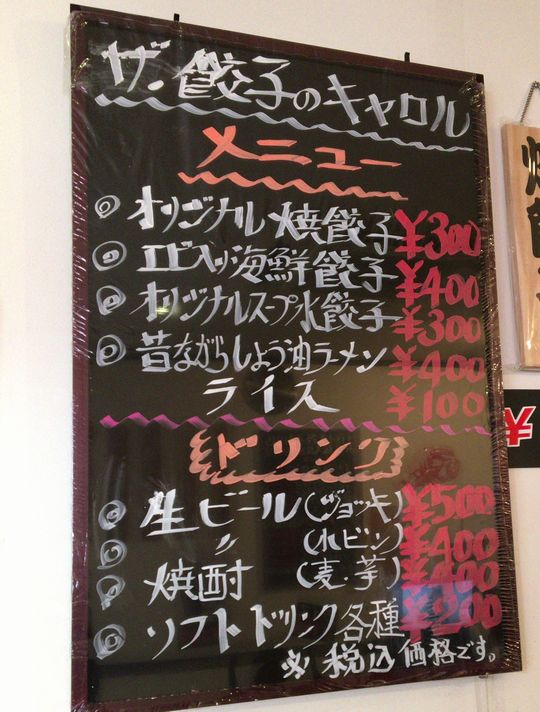 ザ・餃子のキャロル
メニュー
◎ オリジナル焼餃子 ¥300
◎ エビ入り海鮮餃子 ¥400
◎ オリジナルスープ水餃子 ¥300
◎ 昔ながらしょう油ラーメン ¥400
ライス ¥100
ドリンク
◎ 生ビール(ジョッキ) ¥500
◎ 〃 (小ビン) ¥400
◎ 焼酎 (麦・芋) ¥400
◎ ソフトドリンク各種 ¥200
※税込価格です。
¥